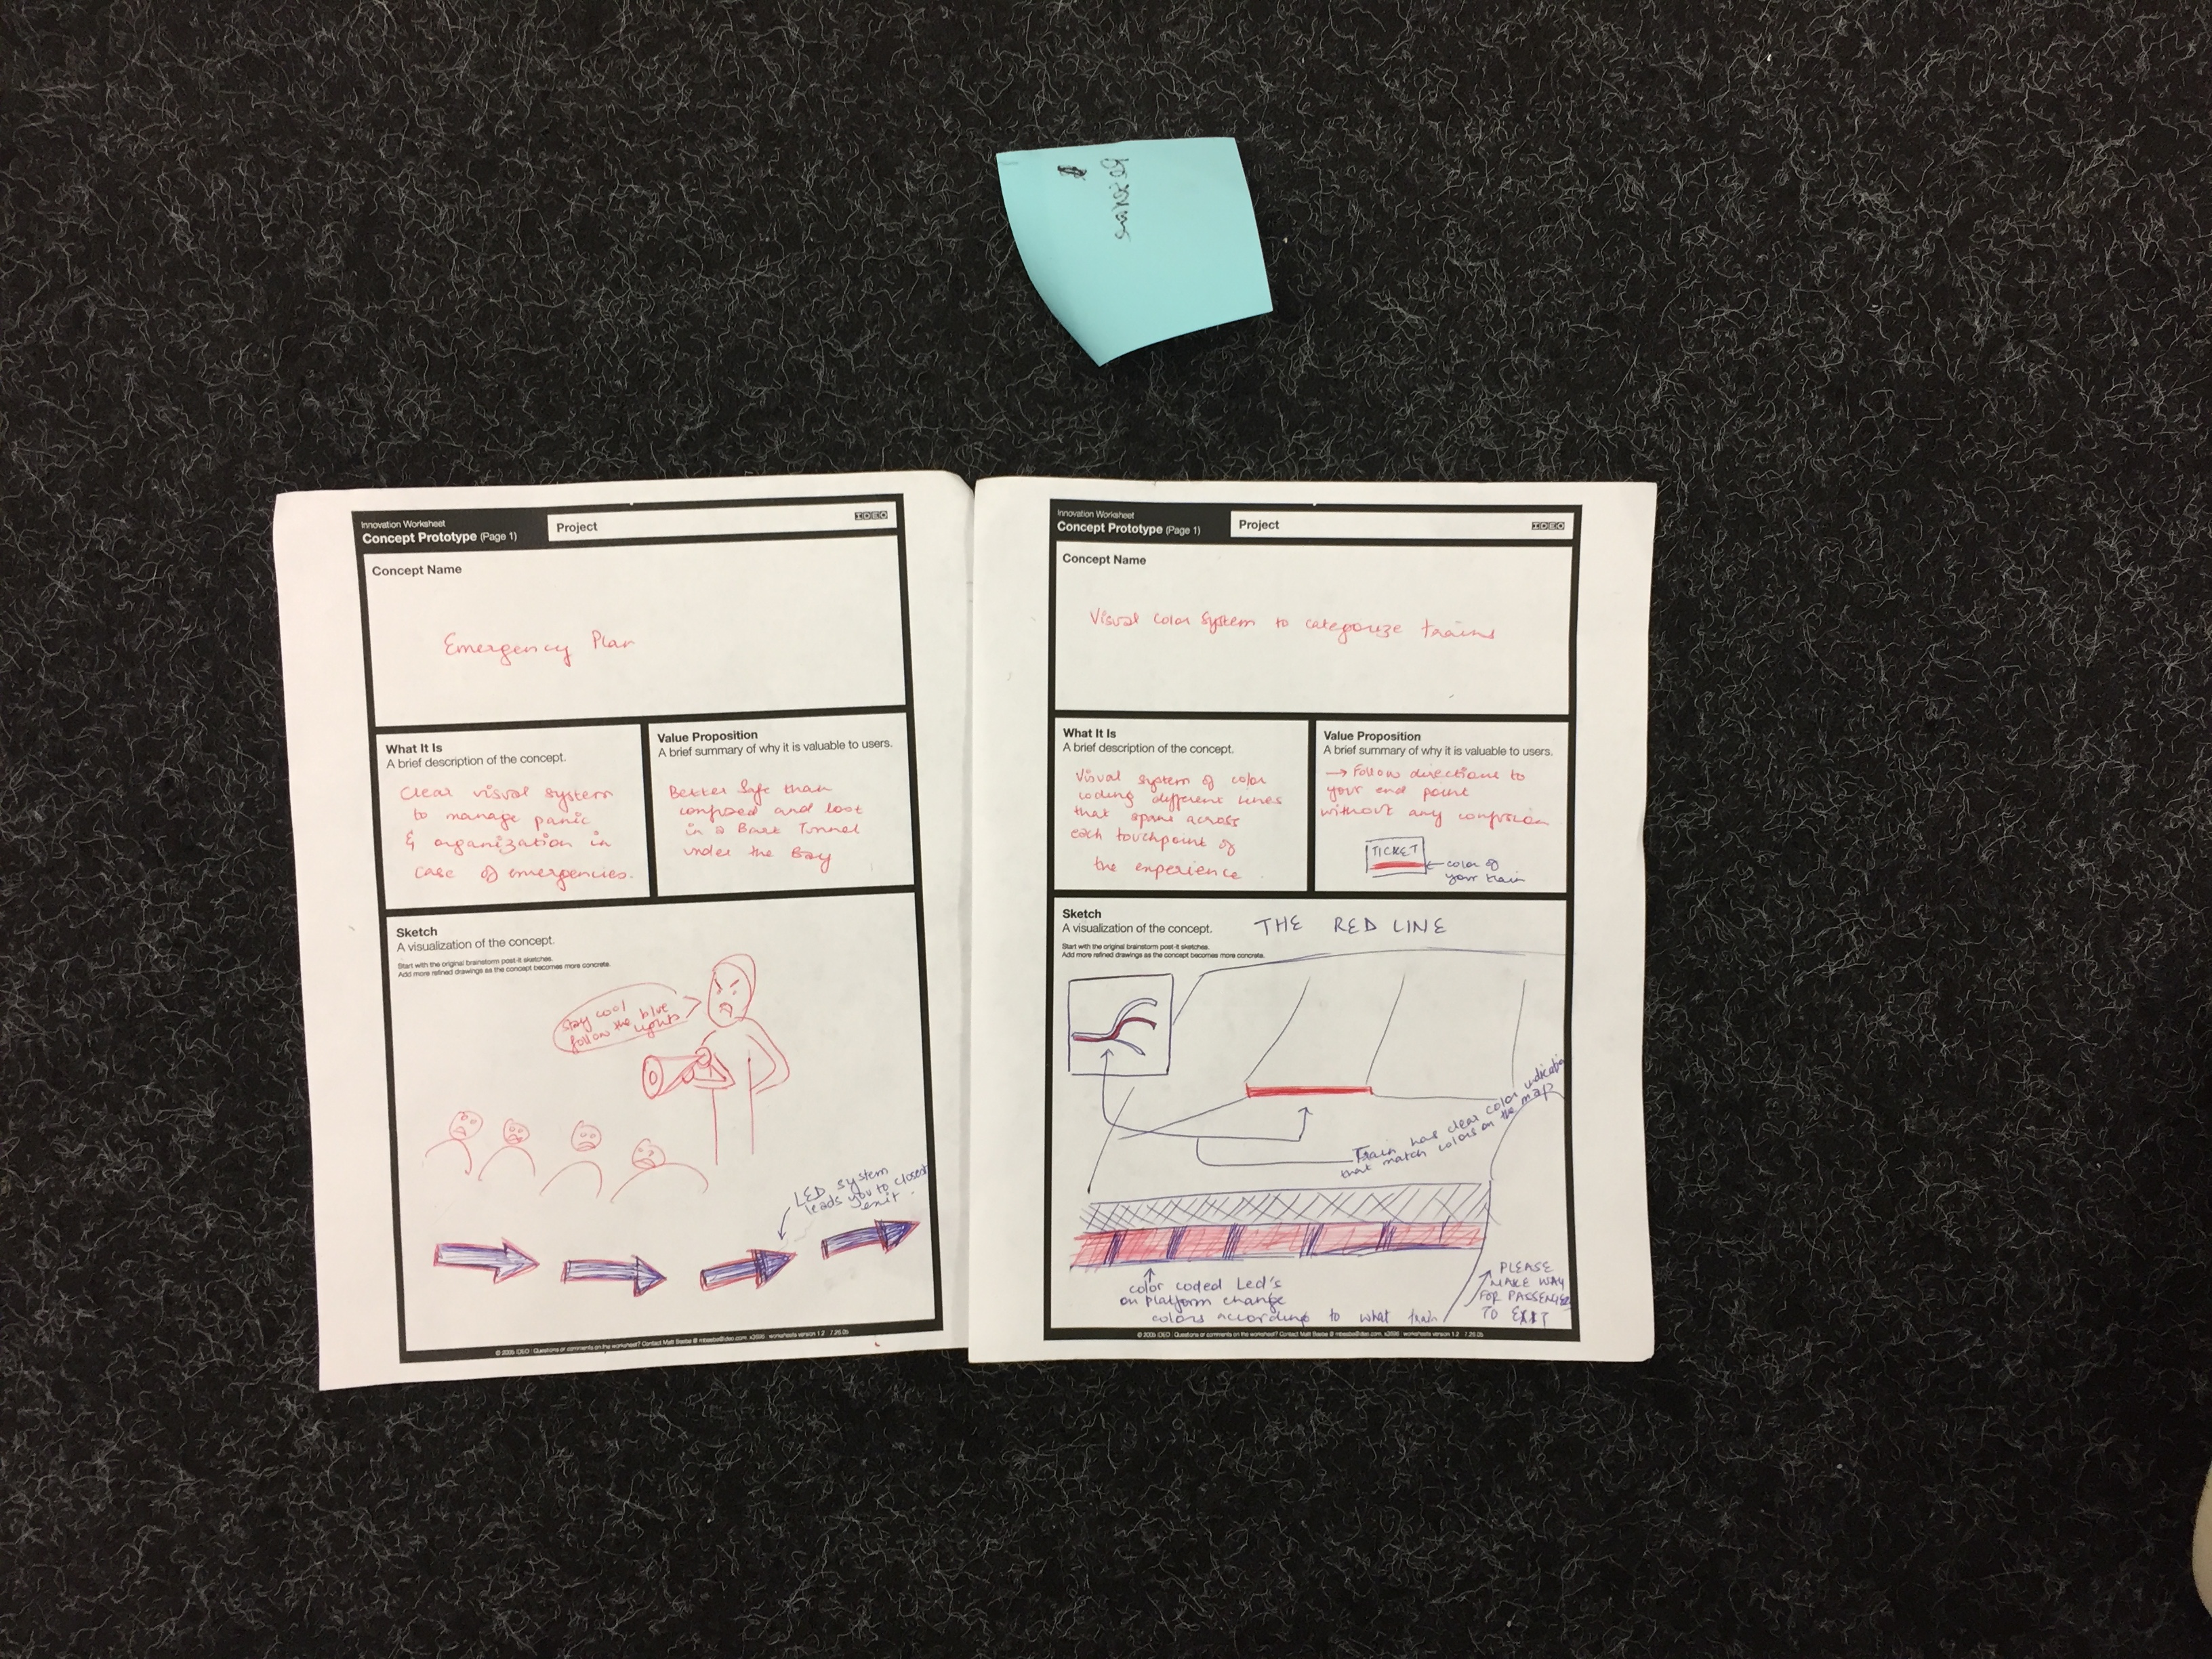 Innovation Worksheet
Concept Prototype (Page 1)
Project
IDEO
Concept Name
Emergency Plan
What It Is
A brief description of the concept.
Clear visual system
to manage panic
& organization in
case of emergencies.
Value Proposition
A brief summary of why it is valuable to users.
Better safe than
confused and lost
in a Bart Tunnel
under the Bay
Sketch
A visualization of the concept.
Start with the original brainstorm post it sketches.
Add more refined drawings as the concept becomes more concrete.
Stay cool
follow the blue
lights
LED system
leads you to closest
exit.
Innovation Worksheet
Concept Prototype (Page 1)
Project
IDEO
Concept Name
Visual color system to categorize trains
What It Is
A brief description of the concept.
Visual system of color
coding different lines
that spans across
each touchpoint of
the experience
Value Proposition
A brief summary of why it is valuable to users.
→ Follow directions to
your end point
without any confusion
TICKET
← color of
your train
Sketch
A visualization of the concept.
Start with the original brainstorm post it sketches.
Add more refined drawings as the concept becomes more concrete.
THE RED LINE
Train has clear color indication
that match colors on the map
color coded Led's
on platform change
colors according to what train
PLEASE
MAKE WAY
FOR PASSENGERS
TO EXIT